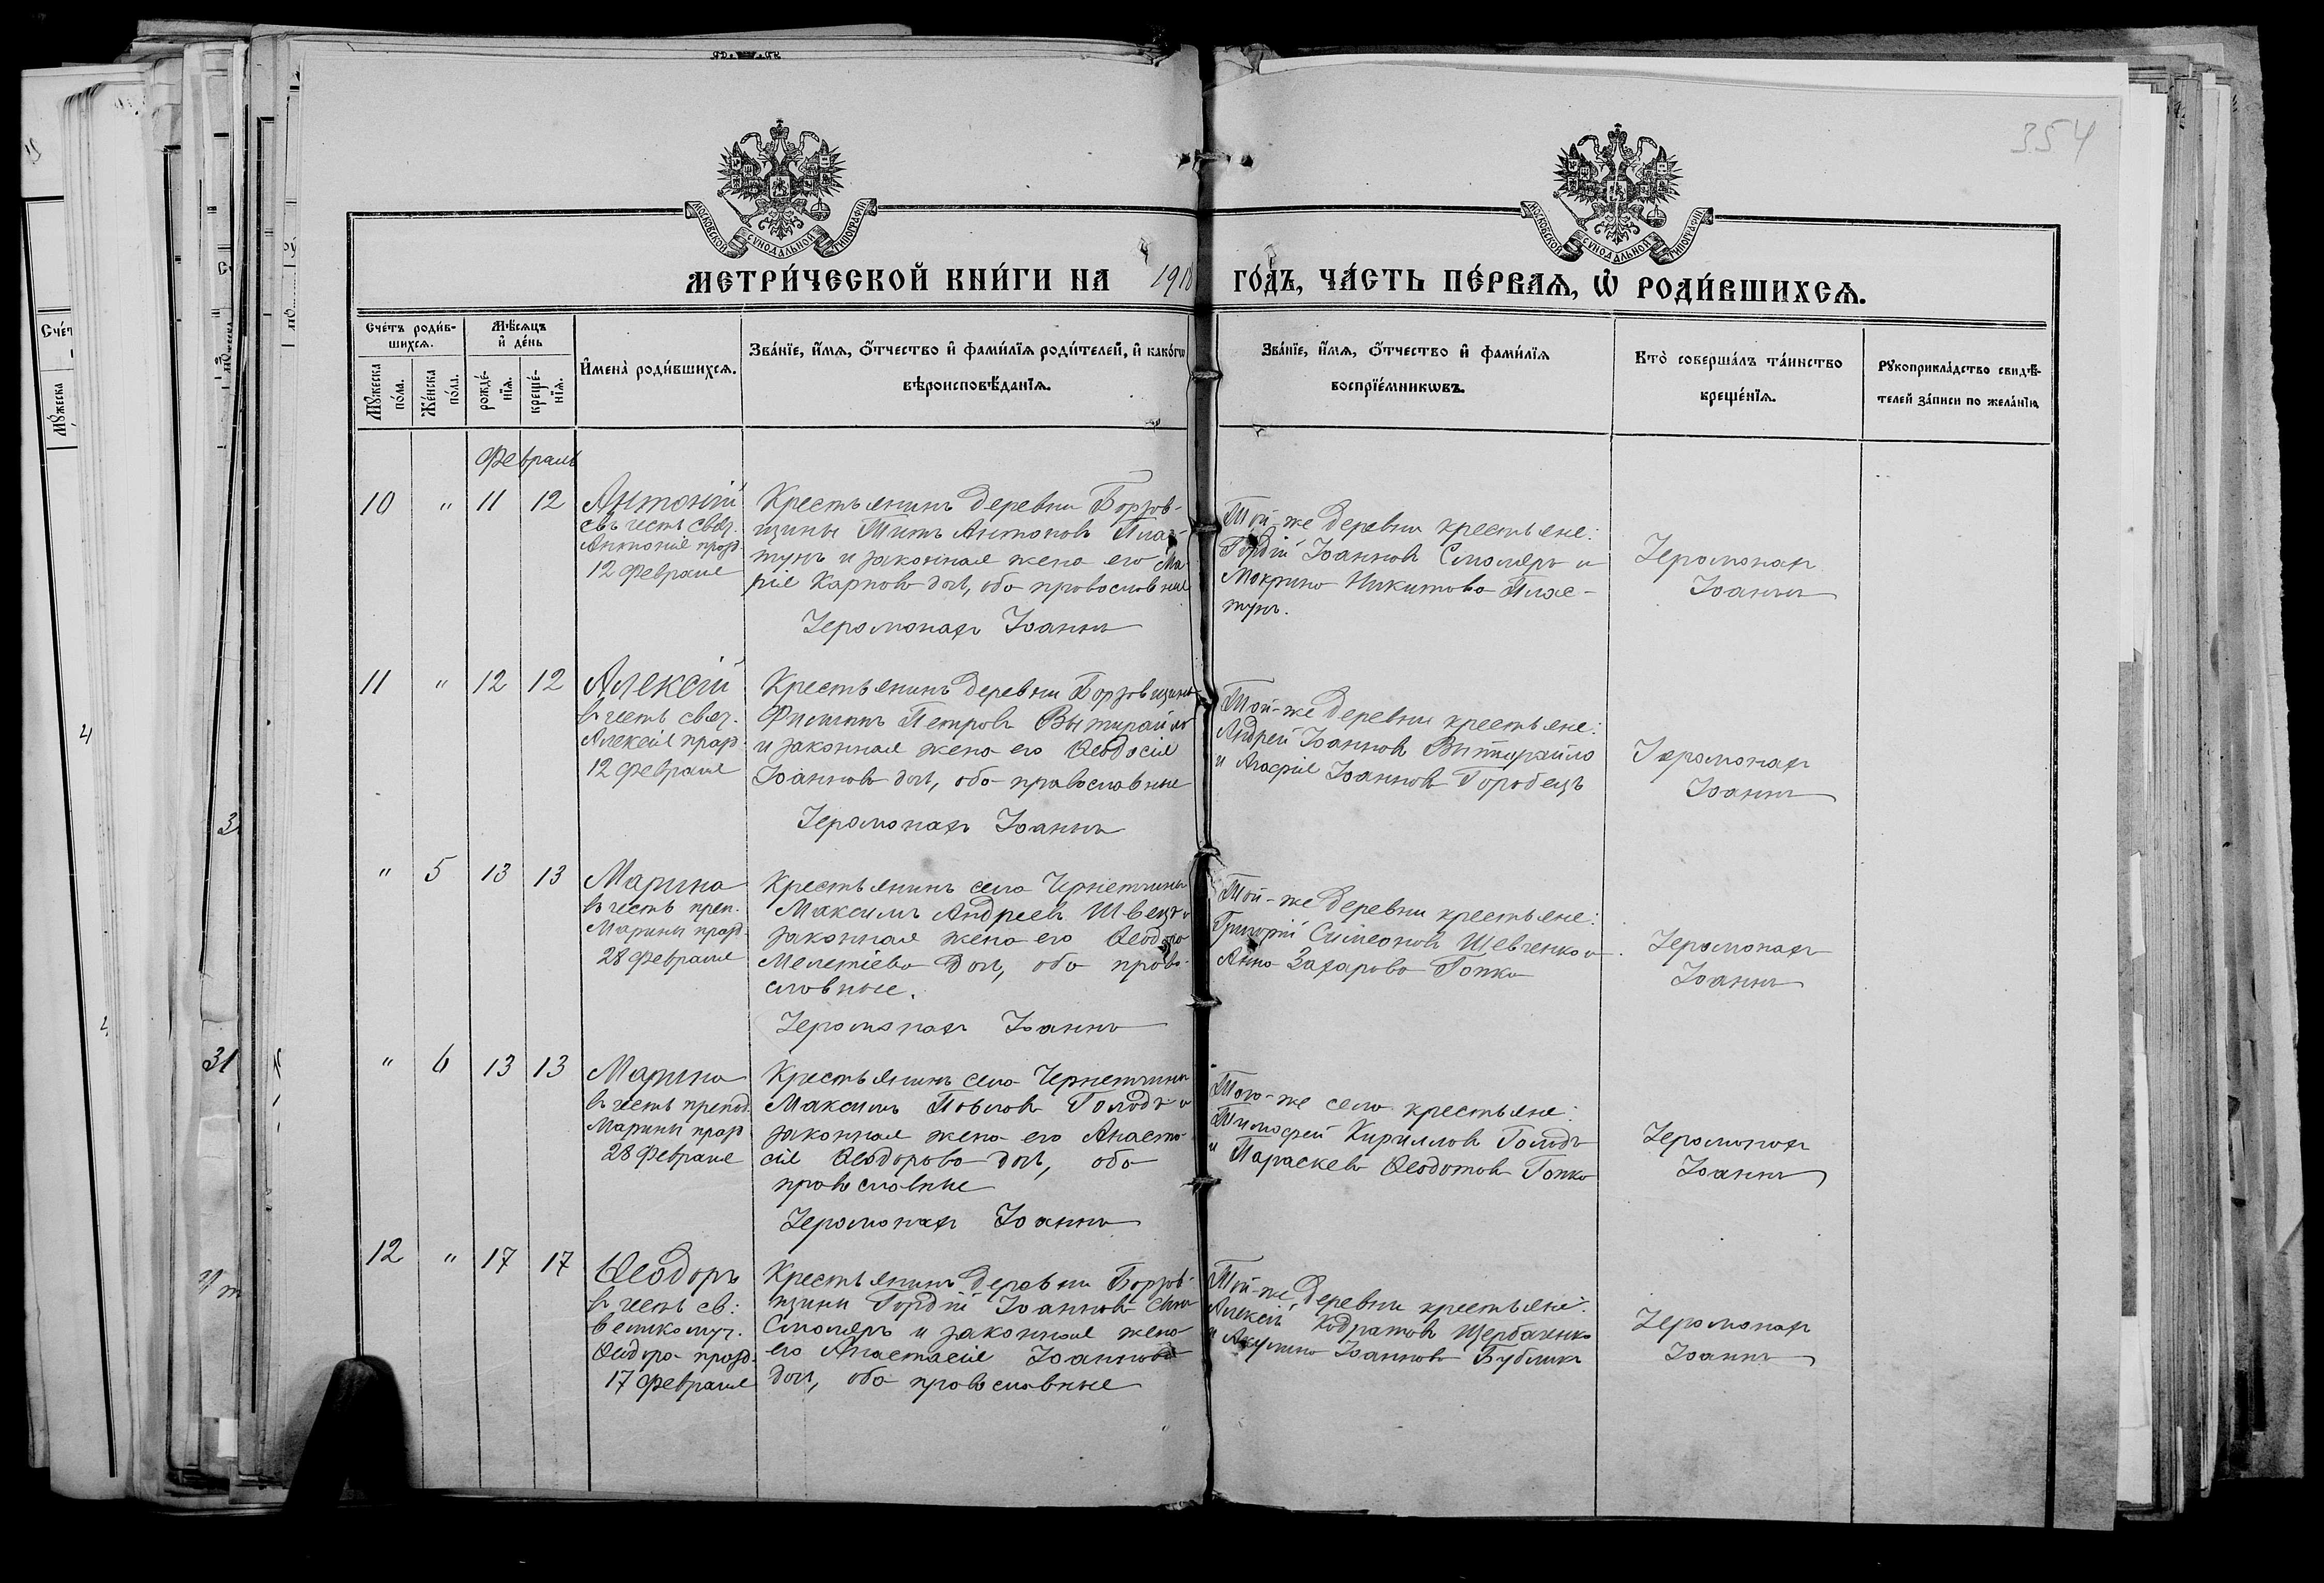 354
МОСКОВСКОЙ СѴНОДАЛЬНОЙ ТИПОГРАФІИ
МОСКОВСКОЙ СѴНОДАЛЬНОЙ ТИПОГРАФІИ
МЕТРИ́ЧЕСКОЙ КНИ́ГИ НА 1918 ГО́ДЪ, ЧА́СТЬ ПЕ́РВАѦ, Ѡ҆ РОДИ́ВШИХСѦ.
Сче́тъ роди́в-
шихсѧ.
Мѣ́сѧцъ
и҆ де́нь
Мꙋ́жеска
по́ла.
Же́нска
по́ла.
рожде́-
нїѧ.
креще́-
нїѧ.
И҆мена̀ роди́вшихсѧ.
Зва́нїе, и҆́мѧ, ѻ҆́тчество и҆ фами́лїѧ роди́телей, и҆ како́гѡ
вѣроисповѣ́данїѧ.
Зва́нїе, и҆́мѧ, ѻ҆́тчество и҆ фами́лїѧ
воспрїе́мникѡвъ.
Кто̀ соверша́лъ та́инство
креще́нїѧ.
Рꙋкоприкла́дство свидѣ́-
телей за́писи по жела́нїю.
Февраль
10 " 11 12
Антоній
въ честь свят.
Антонія празд.
12 февраля
Крестьянинъ деревни Борзов-
щины Титъ Антоновъ Плас-
тунъ и законная жена его Ма
рія Карпова доч, оба православные
Іеромонахъ Іоаннъ
Той-же деревни крестьяне:
Гордій Іоанновъ Смоляръ и
Макрина Никитова Плас-
тунъ.
Іеромонахъ
Іоаннъ
11 " 12 12
Алексій
въ честь свят.
Алексія празд.
12 февраля
Крестьянинъ деревни Борзовщины
Филиппъ Петровъ Вытирайло
и законная жена его Ѳеодосія
Іоаннова доч, оба православные
Іеромонахъ Іоаннъ
Той-же деревни крестьяне:
Андрей Іоанновъ Вытирайло
и Агафія Іоаннова Горобецъ
Іеромонахъ
Іоаннъ
" 5 13 13
Марина
въ честь преп.
Марины празд.
28 февраля
Крестьянинъ села Чернетчины
Максимъ Андреевъ Швецъ и
законная жена его Ѳеодора
Мелетіева доч, оба право-
славные.
Іеромонахъ Іоаннъ
Той-же деревни крестьяне:
Григорій Симеоновъ Шевченко и
Анна Захарова Гопка
Іеромонахъ
Іоаннъ
" 6 13 13
Марина
въ честь препод.
Марины празд.
28 февраля
Крестьянинъ села Чернетчины
Максимъ Павловъ Голодъ и
законная жена его Анаста-
сія Ѳеодорова доч, оба
православные
Іеромонахъ Іоаннъ
Того-же села крестьяне:
Тимофей Кирилловъ Голодъ
и Параскева Ѳеодотова Гопка
Іеромонахъ
Іоаннъ
12 " 17 17
Ѳеодоръ
въ честь св:
великомуч.
Ѳеодора празд.
17 февраля
Крестьянинъ деревни Борзов-
щины Гордій Іоанновъ сынъ
Смоляръ и законная жена
его Анастасія Іоаннова
доч, оба православные
Той-же деревни крестьяне:
Алексій Кодратовъ Щербаченко
и Акулина Іоаннова Бубликъ
Іеромонахъ
Іоаннъ